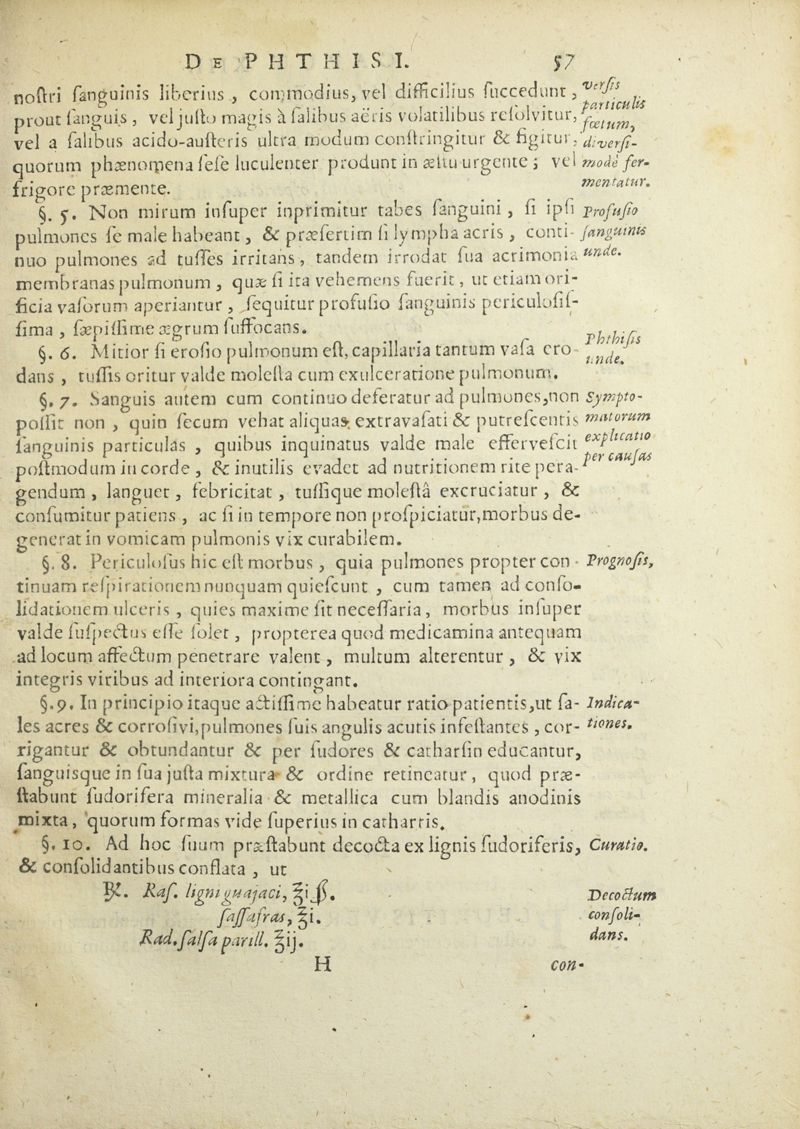 DE PHTHISI. 57
noſtri ſanguinis liberius, commodius, vel difficilius ſuccedunt, verſis
prout ſanguis, vel juſto magis à ſalibus aëris volatilibus reſolvitur, particulis
vel a ſalibus acido-auſteris ultra modum conſtringitur & figitur; fœtum, diverſi-
quorum phænomena ſeſe luculenter produnt in æſtu urgente; vel mode fer-
frigore præmente. mentatur.
§. 5. Non mirum inſuper inprimitur tabes ſanguini, ſi ipſi Profuſio
pulmones ſe male habeant, & præſertim ſi lympha acris, conti- ſanguinis
nuo pulmones ad tuſſes irritans, tandem irrodat ſua acrimonia unde.
membranas pulmonum, quæ ſi ita vehemens fuerit, ut etiam ori-
ficia vaſorum aperiantur, ſequitur profuſio ſanguinis periculoſiſ-
ſima, ſæpiſſime ægrum ſuffocans.
§. 6. Mitior ſi eroſio pulmonum eſt, capillaria tantum vaſa ero- Phthiſis
dans, tuſſis oritur valde moleſta cum exulceratione pulmonum. unde.
§. 7. Sanguis autem cum continuo deferatur ad pulmones, non Sympto-
poſſit non, quin ſecum vehat aliquas extravaſati & putreſcentis matorum
ſanguinis particulas, quibus inquinatus valde male efferveſcit explicatio
poſtmodum in corde, & inutilis evadet ad nutritionem rite pera- per cauſas
gendum, languet, febricitat, tuſſique moleſtâ excruciatur, &
conſumitur patiens, ac ſi in tempore non proſpiciatur, morbus de-
generat in vomicam pulmonis vix curabilem.
§. 8. Periculoſus hic eſt morbus, quia pulmones propter con- Prognoſis,
tinuam reſpirationem nunquam quieſcunt, cum tamen ad conſo-
lidationem ulceris, quies maxime ſit neceſſaria, morbus inſuper
valde ſuſpectus eſſe ſolet, propterea quod medicamina antequam
ad locum affectum penetrare valent, multum alterentur, & vix
integris viribus ad interiora contingant.
§. 9. In principio itaque actiſſime habeatur ratio patientis, ut ſa- Indica-
les acres & corroſivi, pulmones ſuis angulis acutis infeſtantes, cor- tiones.
rigantur & obtundantur & per ſudores & catharſin educantur,
ſanguisque in ſua juſta mixtura & ordine retineatur, quod præ-
ſtabunt ſudorifera mineralia & metallica cum blandis anodinis
mixta, quorum formas vide ſuperius in catharris.
§. 10. Ad hoc ſuum præſtabunt decocta ex lignis ſudoriferis, Curatio.
& conſolidantibus conflata, ut
℞. Raſ. ligni guajaci, ℥iβ. Decoctum
ſaſſafras, ℥i. conſoli-
Rad. ſalſa parill. ℥ij. dans.
H con-